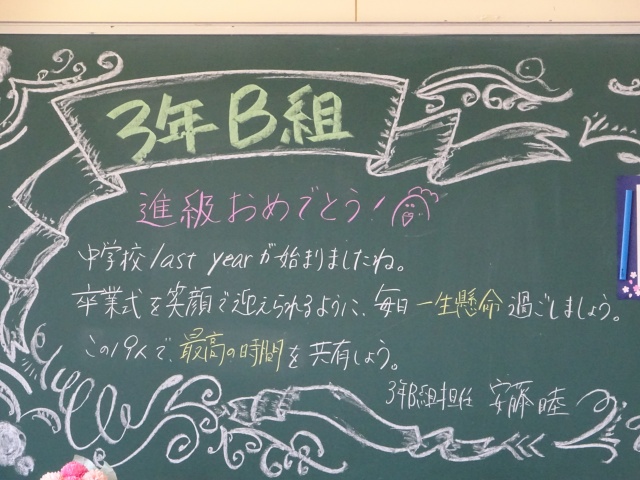 3年B組
進級おめでとう!
中学校last yearが始まりましたね。
卒業式を笑顔で迎えられるように、毎日一生懸命過ごしましょう。
この19人で最高の時間を共有しよう。
3年B組担任 安藤 睦